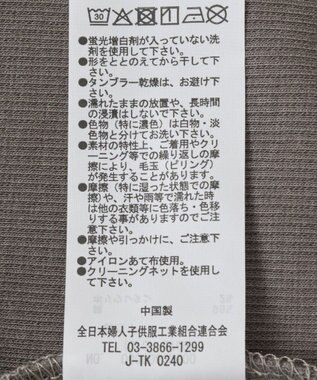 30
●蛍光増白剤が入っていない洗
剤を使用して下さい。
●形をととのえてから干して下
さい。
●タンブラー乾燥は、お避け下
さい。
●濡れたままの放置や、長時間
の浸漬はしないで下さい。
●色物（特に濃色）は白物・淡
色物と分けてお洗い下さい。
●素材の特性上、ご着用やクリ
ーニング等での繰り返しの摩
擦により、毛玉（ピリング）
が発生することがあります。
●摩擦（特に湿った状態での摩
擦）や、汗や雨等で濡れた時
は他の衣類等に色落ち・色移
りする事がありますのでご注
意下さい。
●摩擦や引っかけに、ご注意下
さい。
●アイロンあて布使用。
●クリーニングネットを使用し
て下さい。
中国製
全日本婦人子供服工業組合連合会
TEL 03-3866-1299
J-TK 0240